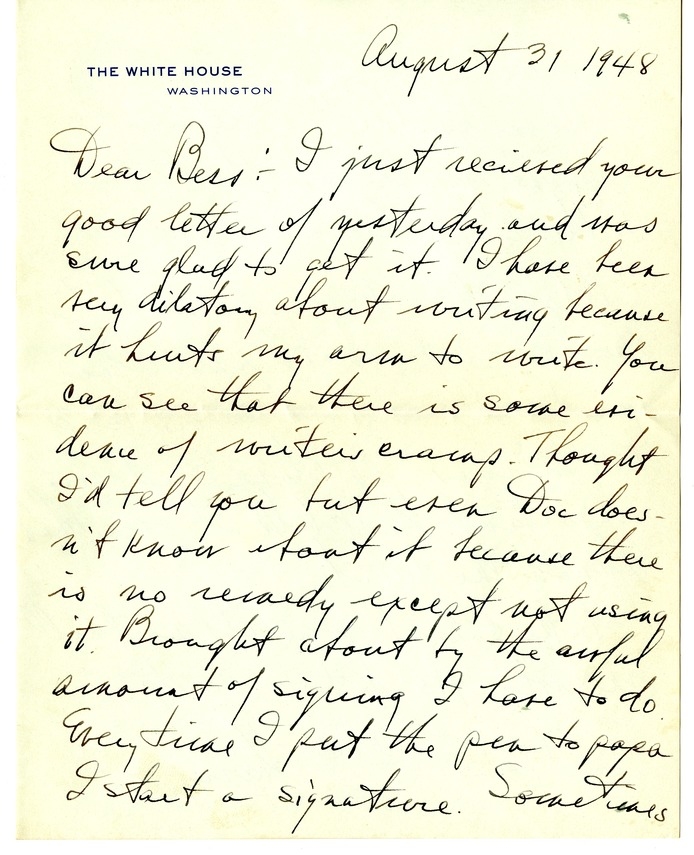 August 31 1948
THE WHITE HOUSE
WASHINGTON
Dear Bess:- I just recieved your
good letter of yesterday and was
sure glad to get it. I have been
very dilatory about writing because
it hurts my arm to write. You
can see that there is some evi-
dence of writers cramp. Thought
I'd tell you but even Doc does-
n't know about it because there
is no remedy except not using
it. Brought about by the awful
amount of signing I have to do.
Every time I put the pen to papa
I start a signature. Sometimes